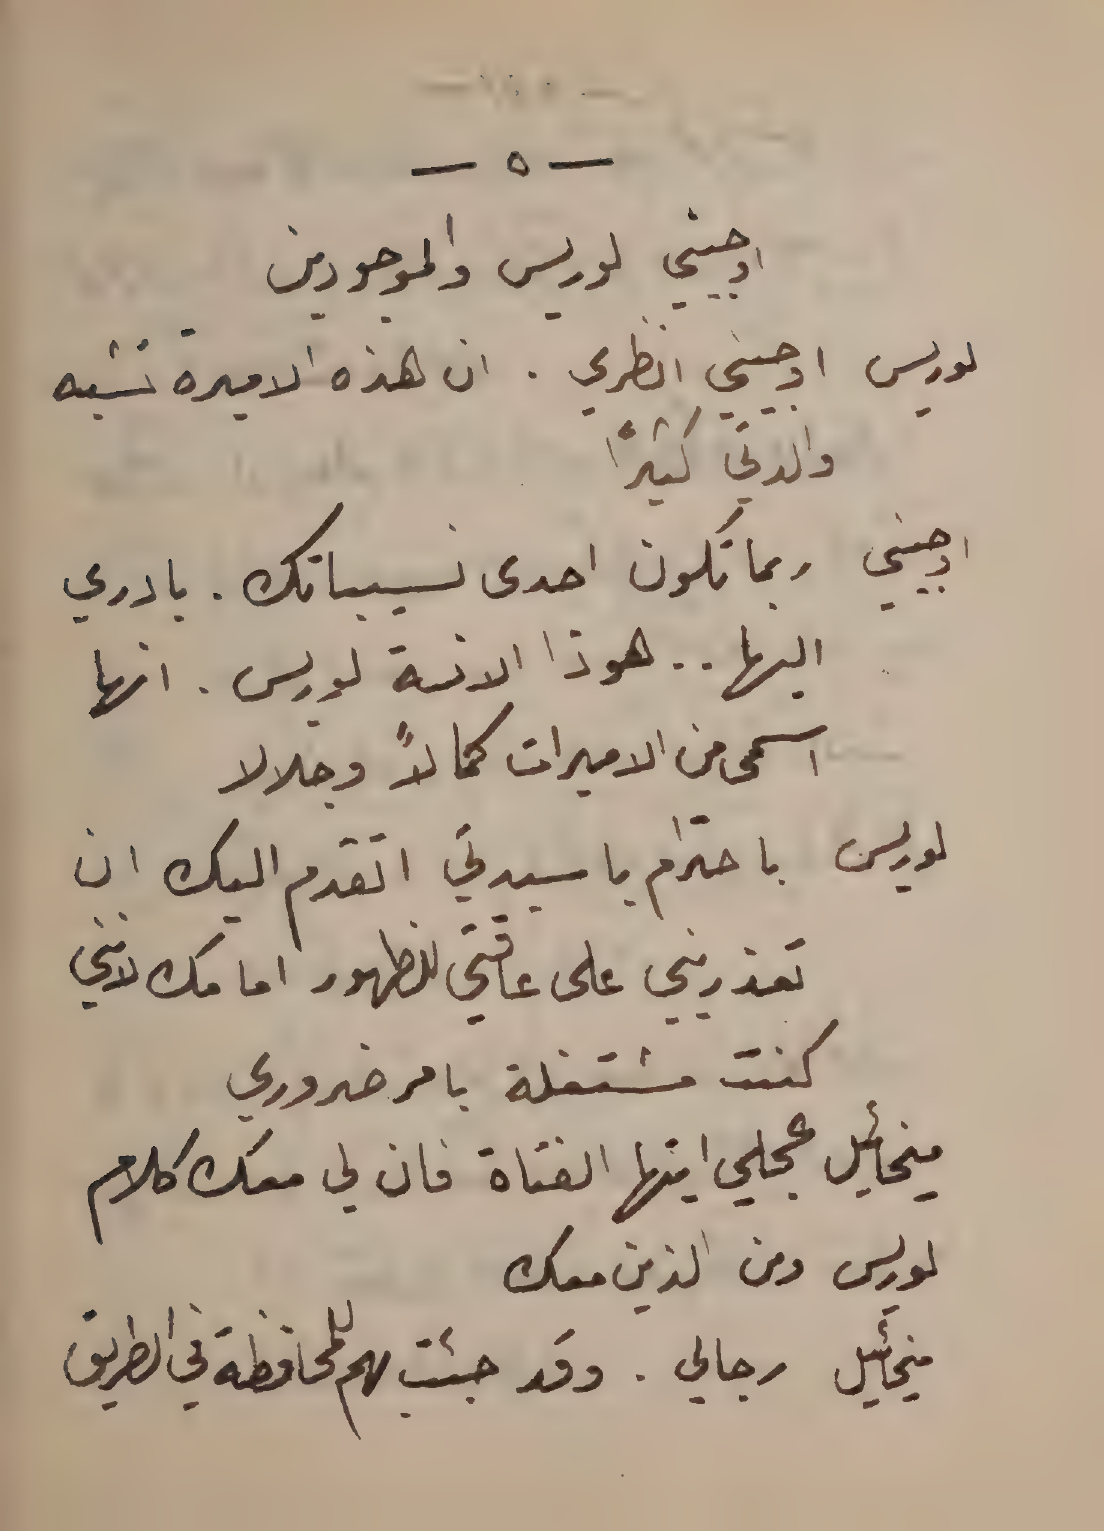 — ٥ —
اوجيني لوريس والموجودين
لوريس اوجيني انظري . ان هذه الاميرة تشبه
والدتي كثيرًا
اوجيني ربما تكون احدى نسيباتك . بادري
اليها .. هوذا الانسة لوريس . انها
اسمى من الاميرات كمالاً وجلالا
لوريس باحترام يا سيدتي اتقدم اليك ان
تعذريني على عاقتي للظهور امامك لانني
كنت مشتغلة بامر ضروري
ميخائيل عجلي ايتها الفتاة فان لي معك كلام
لوريس ومن الذين معك
ميخائيل رجالي . وقد جئت بهم للمحافظة في الطريق